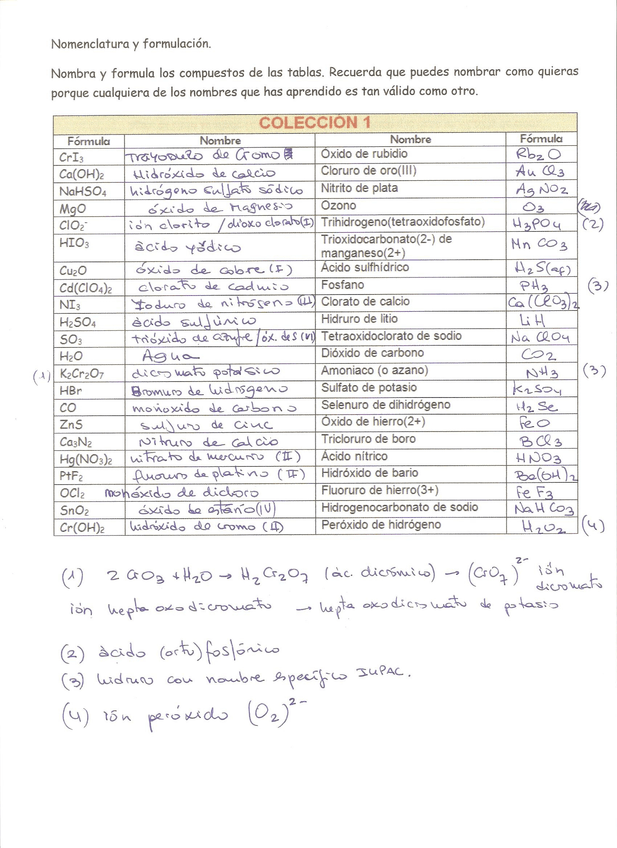 Nomenclatura y formulación.
Nombra y formula los compuestos de las tablas. Recuerda que puedes nombrar como quieras
porque cualquiera de los nombres que has aprendido es tan válido como otro.
COLECCIÓN 1
Fórmula Nombre Nombre Fórmula
CrI3 Trayoduro de Cromo Óxido de rubidio Rb2O
Ca(OH)2 Hidróxido de calcio Cloruro de oro(III) AuCl3
NaHSO4 hidrógeno sulfato sódico Nitrito de plata AgNO2
MgO óxido de magnesio Ozono O3
ClO2- ión clorito / dioxo clorato(I) Trihidrogeno(tetraoxidofosfato) H3PO4 (2)
HIO3 ácido yódico Trioxidocarbonato(2-) de manganeso(2+) MnCO3
Cu2O óxido de cobre (I) Ácido sulfhídrico H2S(aq)
Cd(ClO4)2 clorato de cadmio Fosfano PH3 (3)
NI3 Ioduro de nitrógeno (III) Clorato de calcio Ca(ClO3)2
H2SO4 ácido sulfúrico Hidruro de litio LiH
SO3 trióxido de azufre / óx. de S (VI) Tetraoxidoclorato de sodio NaClO4
H2O Agua Dióxido de carbono CO2
(1) K2Cr2O7 dicromato potásico Amoniaco (o azano) NH3 (3)
HBr Bromuro de hidrógeno Sulfato de potasio K2SO4
CO monóxido de carbono Selenuro de dihidrógeno H2Se
ZnS sulfuro de cinc Óxido de hierro(2+) FeO
Ca3N2 Nitruro de calcio Tricloruro de boro BCl3
Hg(NO3)2 nitrato de mercurio (II) Ácido nítrico HNO3
PtF2 fluoruro de platino (II) Hidróxido de bario Ba(OH)2
OCl2 monóxido de dicloro Fluoruro de hierro(3+) FeF3
SnO2 óxido de estaño(IV) Hidrogenocarbonato de sodio NaHCO3
Cr(OH)2 hidróxido de cromo (II) Peróxido de hidrógeno H2O2 (4)
(1) 2 CrO3 + H2O → H2Cr2O7 (ác. dicrómico) → (CrO7)2- ión
dicromato
ión hepta oxodicromato → hepta oxodicromato de potasio
(2) ácido (orto)fosfórico
(3) hidruro con nombre específico IUPAC.
(4) ión peróxido (O2)2-